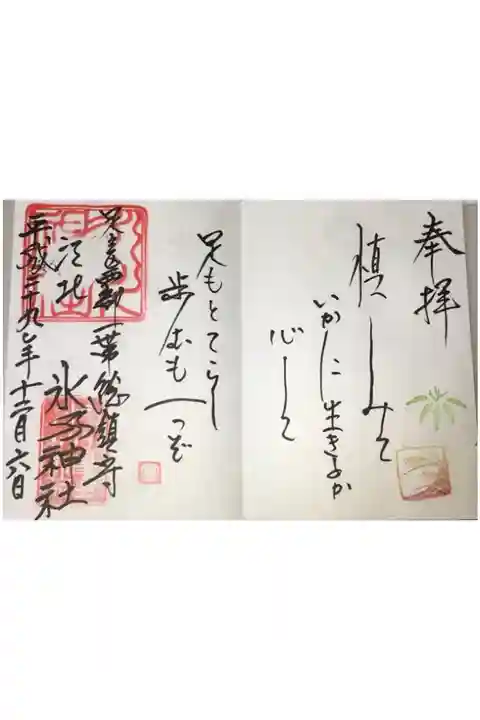 奉拝
慎しみて
いかに生きるか
心して
足もとてらし
歩むも一つぞ
足立郡一帯総鎮守
江北
氷川神社
平成二十九年十二月六日